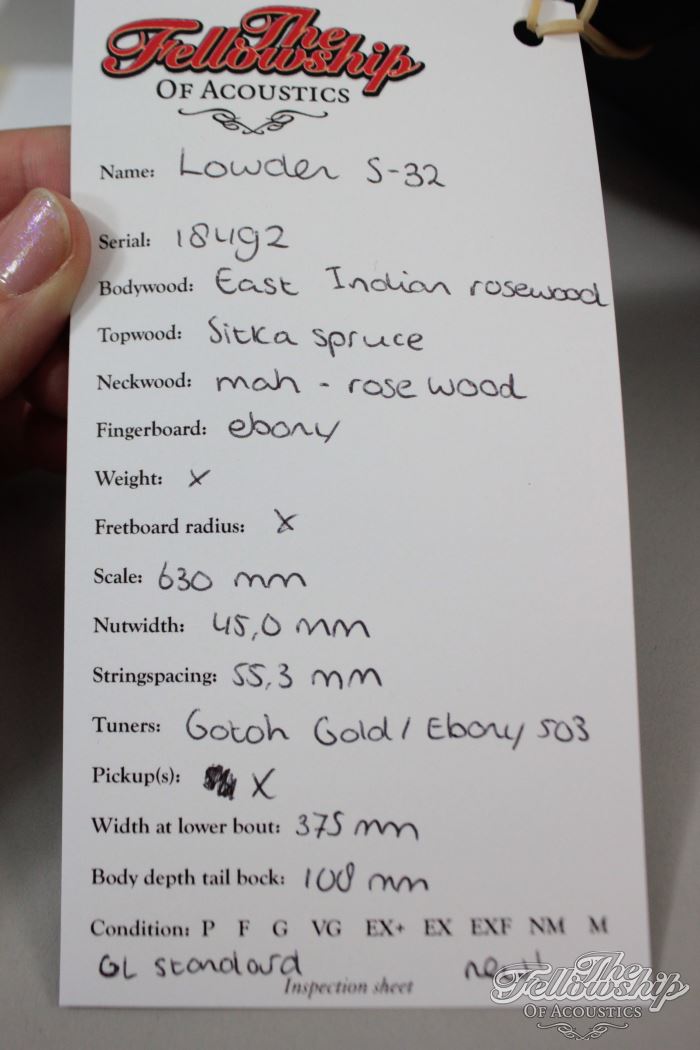 The
Fellowship
OF ACOUSTICS
Name: Lowden S-32
Serial: 18492
Bodywood: East Indian rosewood
Topwood: Sitka spruce
Neckwood: mah - rosewood
Fingerboard: ebony
Weight: x
Fretboard radius: x
Scale: 630 mm
Nutwidth: 45,0 mm
Stringspacing: 55,3 mm
Tuners: Gotoh Gold / Ebony 503
Pickup(s): X
Width at lower bout: 375 mm
Body depth tail bock: 108 mm
Condition: P F G VG EX+ EX EXF NM M
GL standard
Inspection sheet
The
Fellowship
OF ACOUSTICS